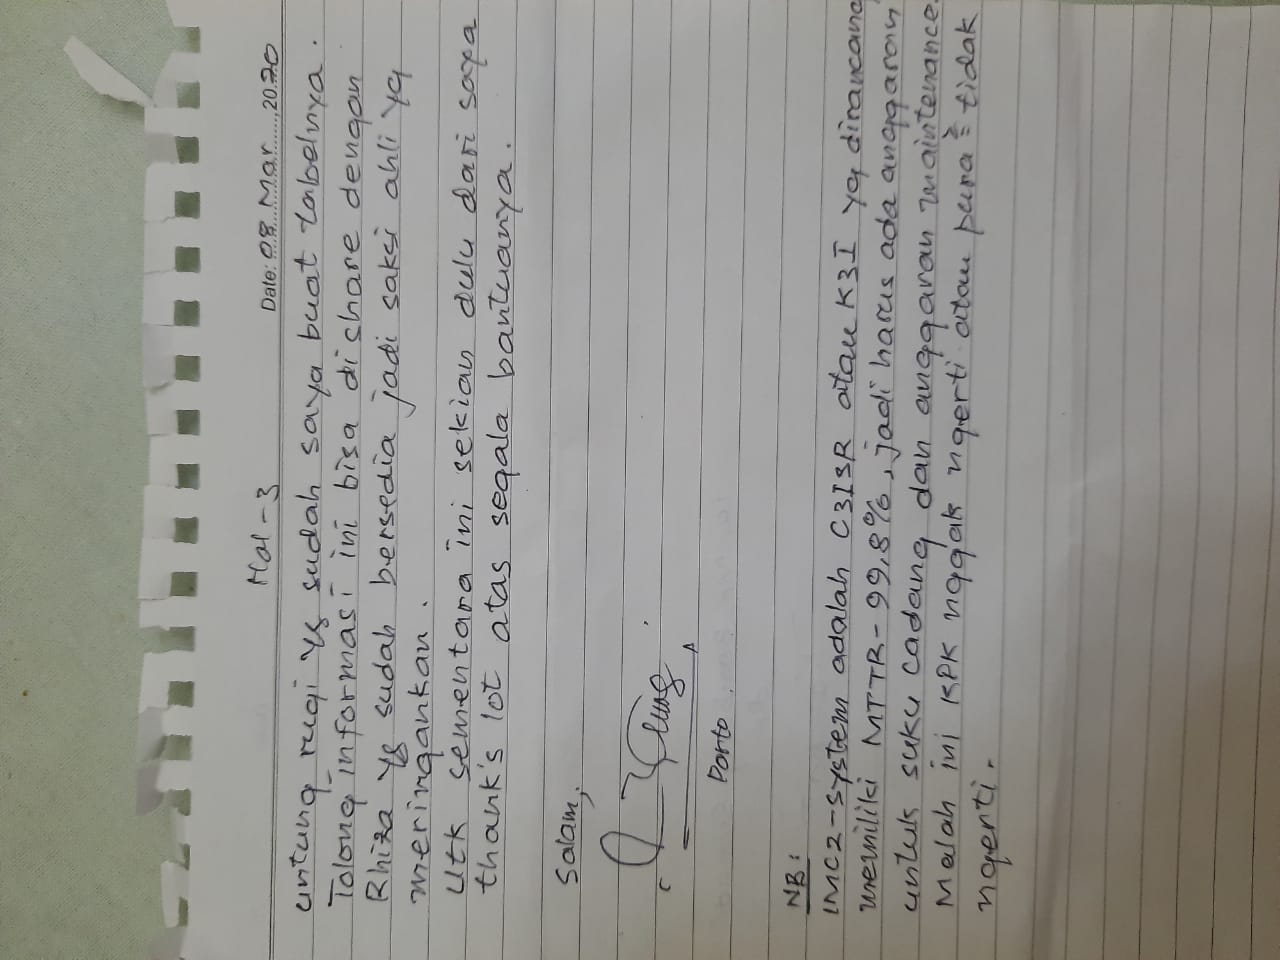 Hal-3
Date: 08 Mar 2020
untung rugi yg sudah saya buat tabelnya.
Tolong informasi ini bisa dishare dengan
Rhiza yg sudah bersedia jadi saksi ahli yg
meringankan.
Utk sementara ini sekian dulu dari saya
thank's lot atas segala bantuanya.
Salam,
Porto
NB:
IMC2-system adalah C3ISR atau K3I yg dirancang
memiliki MTTR-99,8%, jadi harus ada anggaran
untuk suku cadang dan anggaran maintenance.
Malah ini KPK nggak ngerti atau pura² tidak
ngerti.